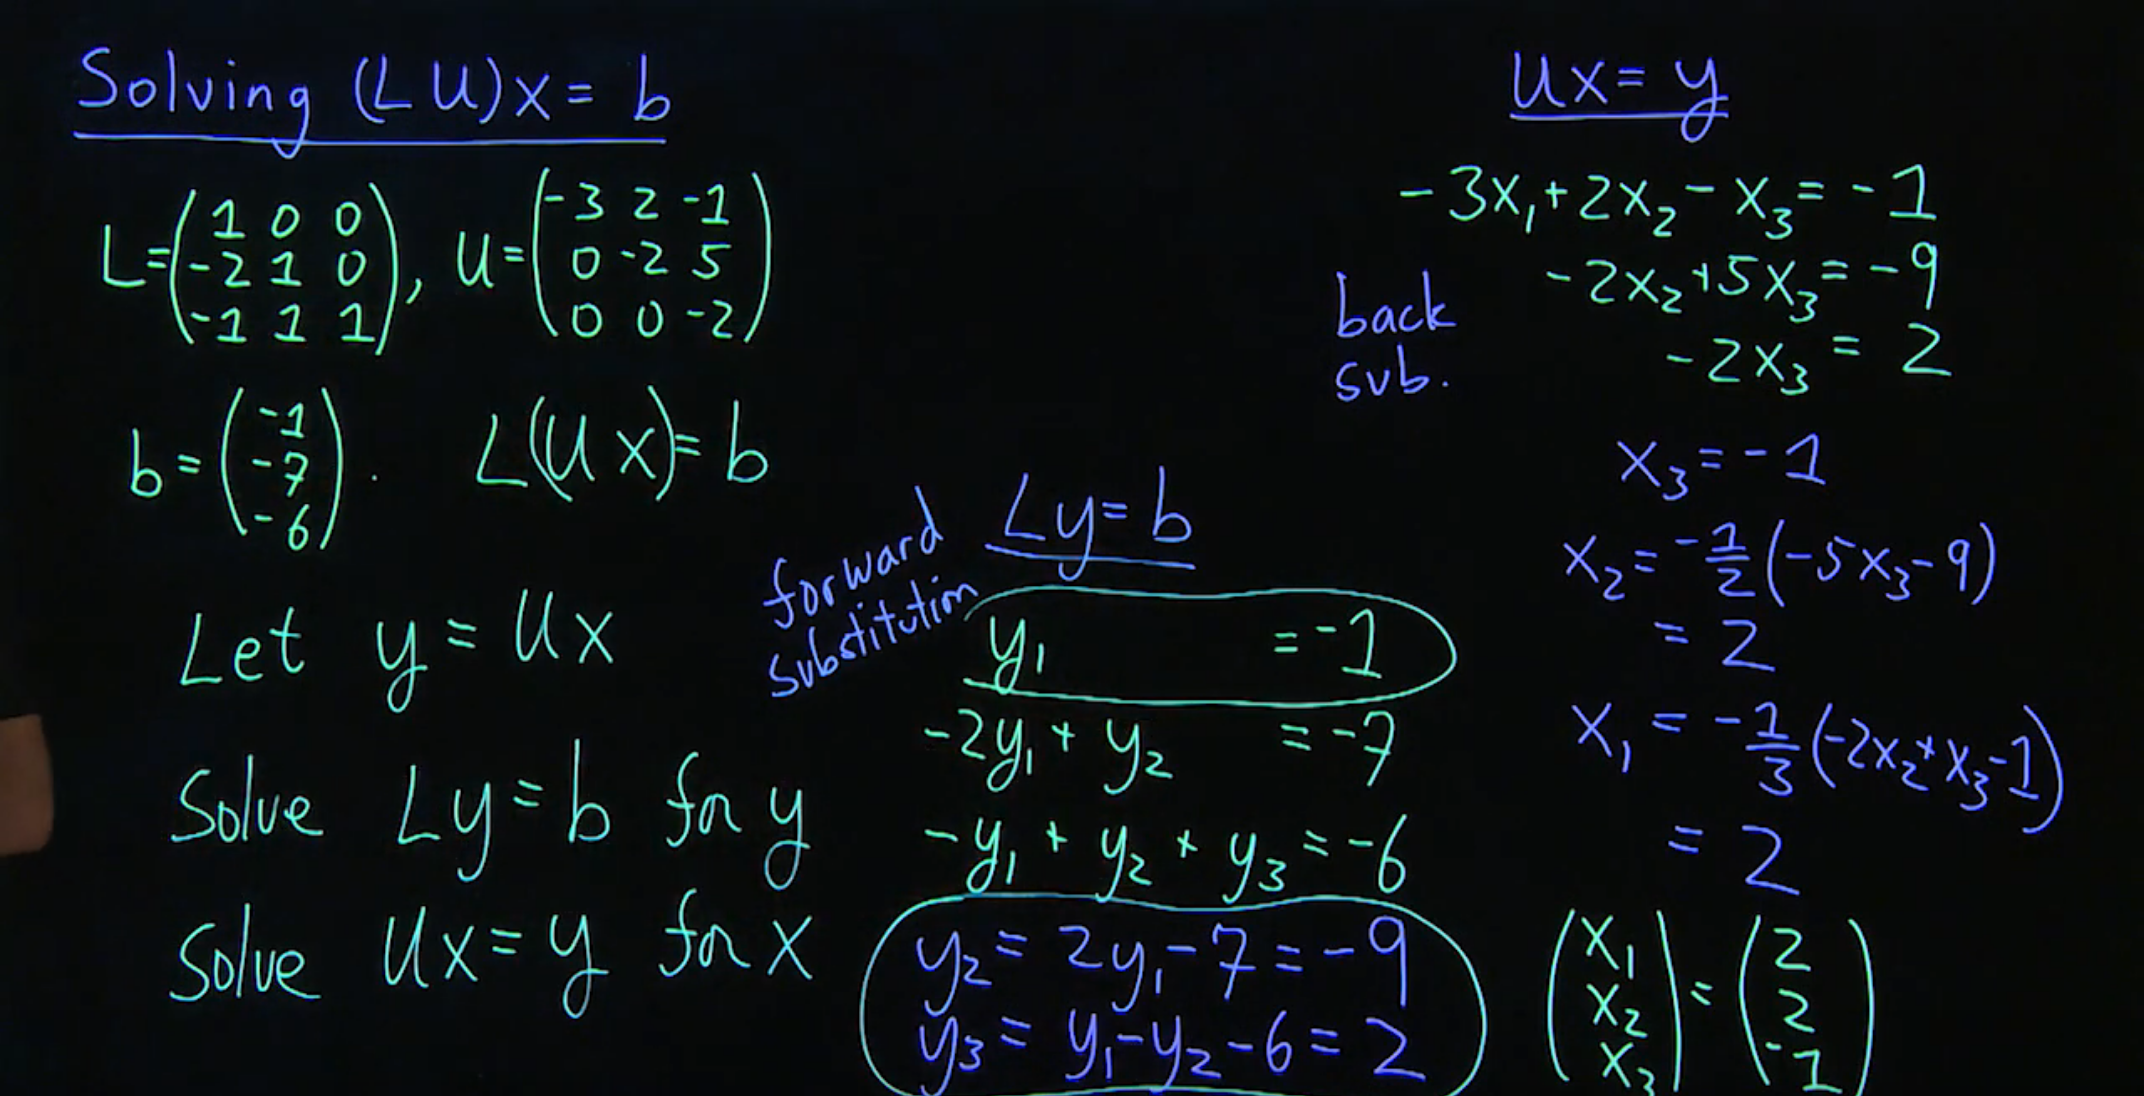 Solving (LU)x = b
L = (1 0 0
-2 1 0
-1 1 1), U = (-3 2 -1
0 -2 5
0 0 -2)
b = (-1
-7
-6). L(Ux) = b
Let y = Ux
Solve Ly = b for y
Solve Ux = y for x
forward
substitution
Ly = b
y₁ = -1
-2y₁ + y₂ = -7
-y₁ + y₂ + y₃ = -6
y₂ = 2y₁ - 7 = -9
y₃ = y₁ - y₂ - 6 = 2
Ux = y
back
sub.
-3x₁ + 2x₂ - x₃ = -1
-2x₂ + 5x₃ = -9
-2x₃ = 2
x₃ = -1
x₂ = -1/2 (-5x₃ - 9)
= 2
x₁ = -1/3 (-2x₂ + x₃ - 1)
= 2
(x₁
x₂
x₃) = (2
2
-1)